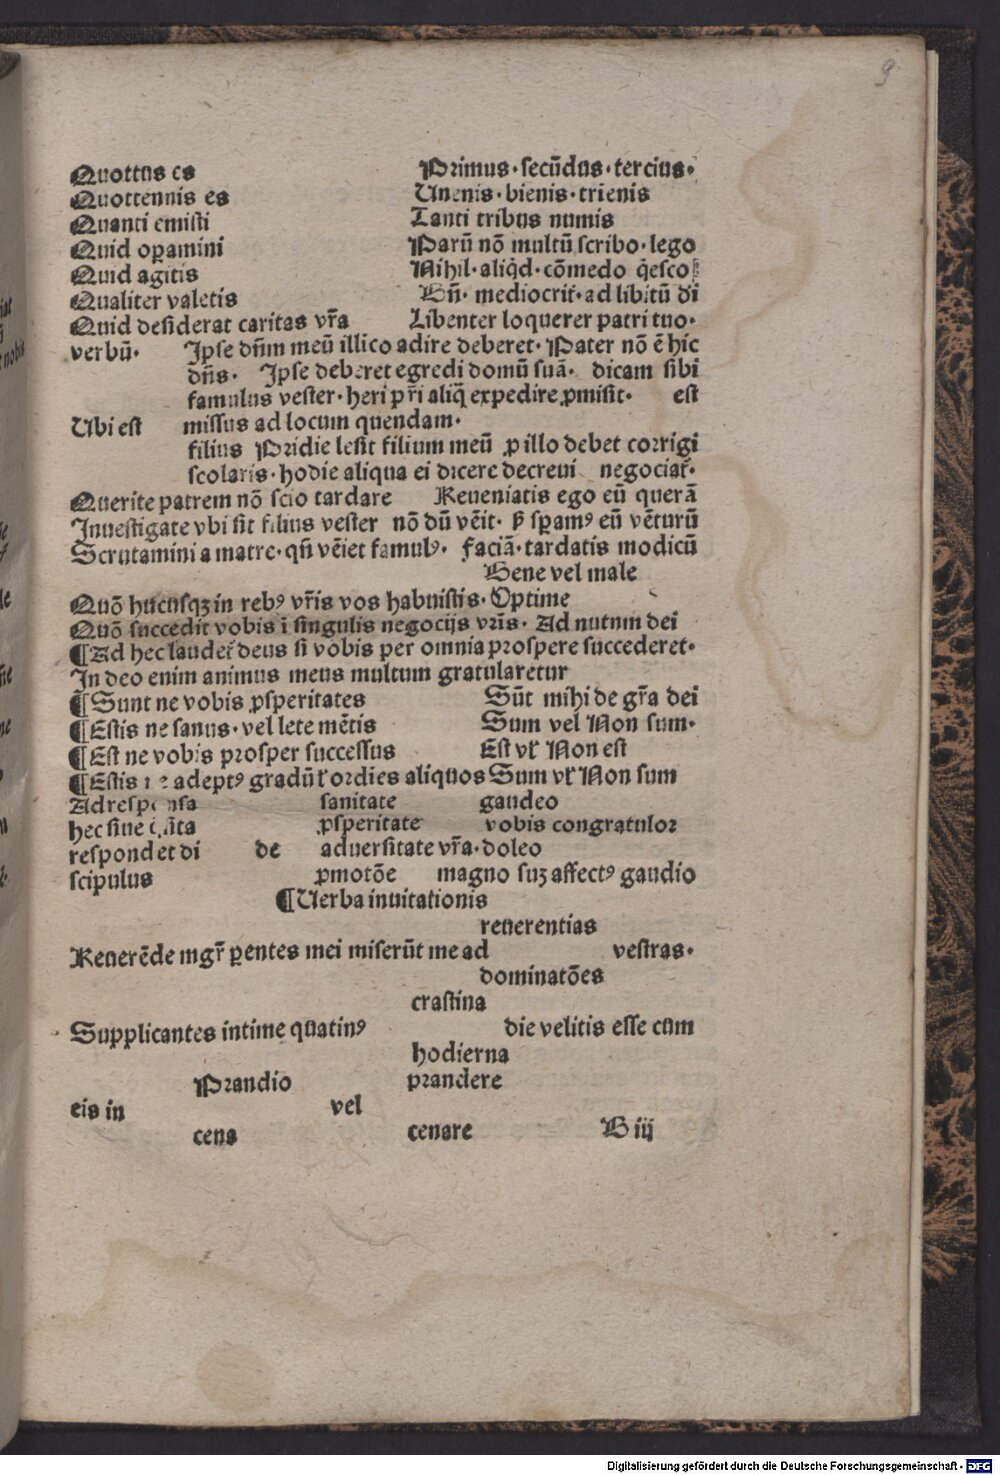 9
Quottus es Primus·secūdus·tercius·
Quottennis es Unenis·bienis·trienis
Quanti emisti Tanti tribus numis
Quid oꝑamini Parū nō multū scribo·lego
Quid agitis Nihil·aliq̄d·cōmedo q̄esco
Qualiter valetis Bn̄·mediocrit̄·ad libitū di
Quid desiderat caritas vr̄a Libenter loquerer patri tuo·
verbū· Ipse dn̄m meū illico adire deberet·Pater nō ē hic
dn̄s· Ipse deberet egredi domū suā· dicam sibi
famulus vester·heri pr̄i aliq̄ expedire ꝓmisit· est
Ubi est missus ad locum quendam·
filius Pridie lesit filium meū ꝓ illo debet corrigi
scolaris·hodie aliqua ei dicere decreui negociat̄·
Querite patrem nō scio tardare Reueniatis ego eū querā
Inuestigate vbi sit filius vester nō dū vēit· ꝫ sꝑamꝰ eū vēturū
Scrutamini a matre·qn̄ vēiet famulꝰ· faciā·tardatis modicū
Bene vel male
Quō hucusqꝫ in rebꝰ vr̄is vos habuistis·Optime
Quō succedit vobis ī singulis negocijs vr̄is· Ad nutum dei
¶Ad hec laudet̄ deus si vobis per omnia prospere succederet·
In deo enim animus meus multum gratularetur
¶Sunt ne vobis ꝓsperitates Sūt mihi de gr̄a dei
¶Estis ne sanus·vel lete mētis Sum vel Non sum·
¶Est ne vobis prosper successus Est vl̄ Non est
¶Estis ne adeptꝰ gradū l̄ ordies aliquos Sum vl̄ Non sum
Ad responsa sanitate gaudeo
hec siue ꝓsperitate vobis congratulor
respondet di de aduersitate vr̄a·doleo
scipulus ꝓmotōe magno suꝫ affectꝰ gaudio
¶Uerba inuitationis
reuerentias
Reuerēde mgr̄ ꝑentes mei miserūt me ad vestras·
dominatōes
crastina
Supplicantes intime quatinꝰ die velitis esse cum
hodierna
Prandio prandere
eis in vel
cena cenare B iij
Digitalisierung gefördert durch die Deutsche Forschungsgemeinschaft · DFG